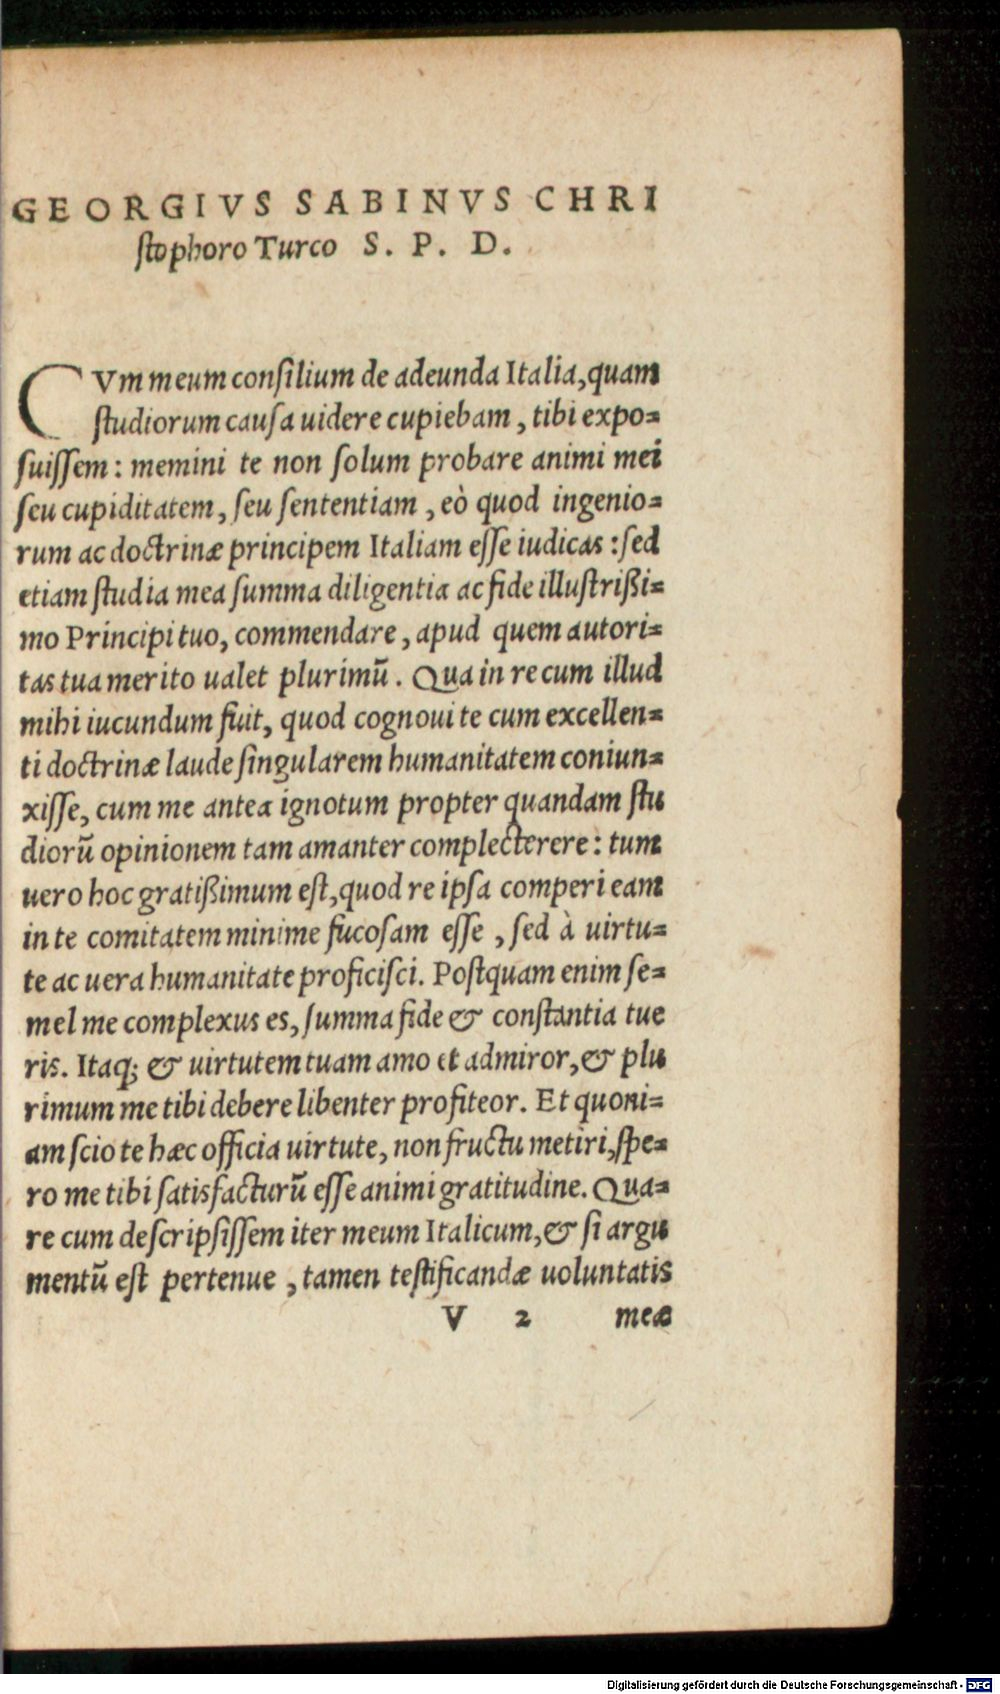 GEORGIVS SABINVS CHRI
ſtophoro Turco S. P. D.
CVm meum conſilium de adeunda Italia, quam
ſtudiorum cauſa uidere cupiebam, tibi expo=
ſuiſſem: memini te non ſolum probare animi mei
ſeu cupiditatem, ſeu ſententiam, eò quod ingenio=
rum ac doctrinæ principem Italiam eſſe iudicas: ſed
etiam ſtudia mea ſumma diligentia ac fide illuſtrißi=
mo Principi tuo, commendare, apud quem autori=
tas tua merito ualet plurimũ. Qua in re cum illud
mihi iucundum fuit, quod cognoui te cum excellen=
ti doctrinæ laude ſingularem humanitatem coniun=
xiſſe, cum me antea ignotum propter quandam ſtu
diorũ opinionem tam amanter complecterere: tum
uero hoc gratißimum eſt, quod re ipſa comperi eam
in te comitatem minime fucoſam eſſe, ſed à uirtu=
te ac uera humanitate proficiſci. Poſtquam enim ſe=
mel me complexus es, ſumma fide & conſtantia tue
ris. Itaq; & uirtutem tuam amo et admiror, & plu
rimum me tibi debere libenter profiteor. Et quoni=
am ſcio te hæc officia uirtute, non fructu metiri, ſpe=
ro me tibi ſatisfacturũ eſſe animi gratitudine. Qua=
re cum deſcripſiſſem iter meum Italicum, & ſi argu
mentũ eſt pertenue, tamen teſtificandæ uoluntatis
V 2 meæ
Digitalisierung gefördert durch die Deutsche Forschungsgemeinschaft - DFG